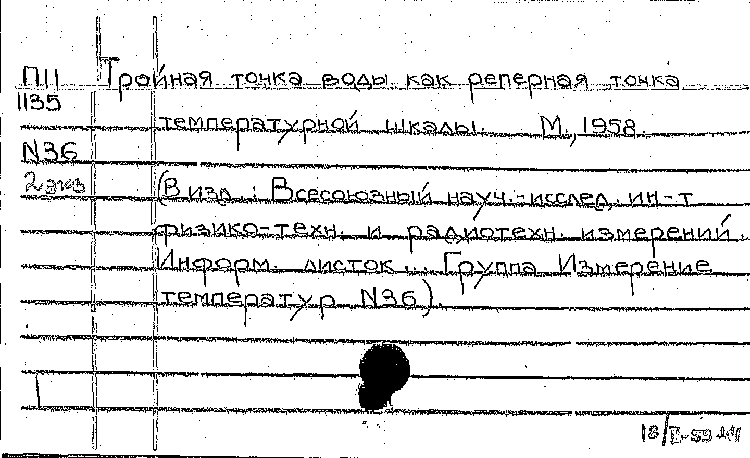 П11 Тройная точка воды как реперная точка
1135
температурной шкалы. М., 1958.
N36
2 экз (В изд.: Всесоюзный науч.-исслед. ин-т
физико-техн. и радиотехн. измерений.
Информ. листок... Группа Измерение
температур N36).
18/